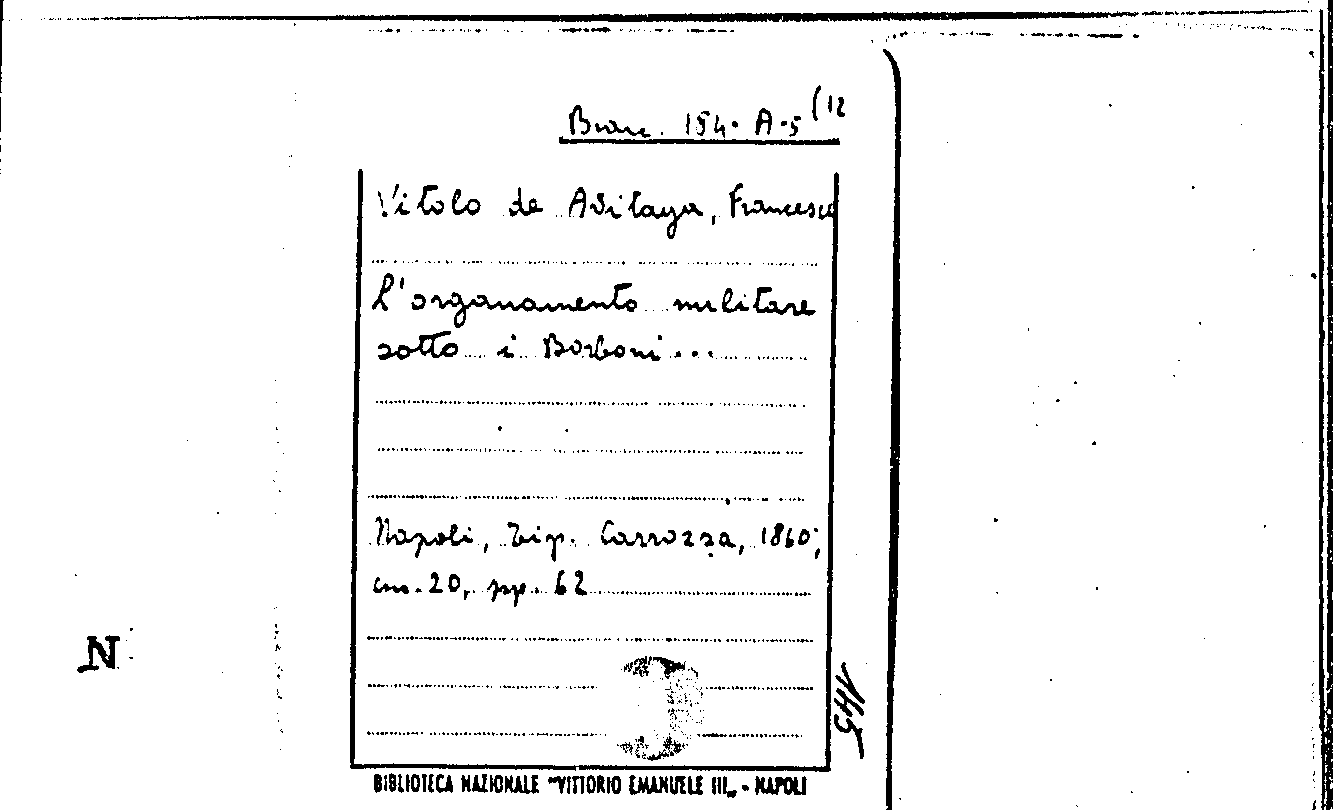 Branc. 154. A. 5 (12
Vitolo de Avitaya, Francesco
L'organamento militare
sotto i Borboni...
Napoli, Tip. Carrozza, 1860;
cm. 20, pp. 62
N
BIBLIOTECA NAZIONALE "VITTORIO EMANUELE III„ - NAPOLI